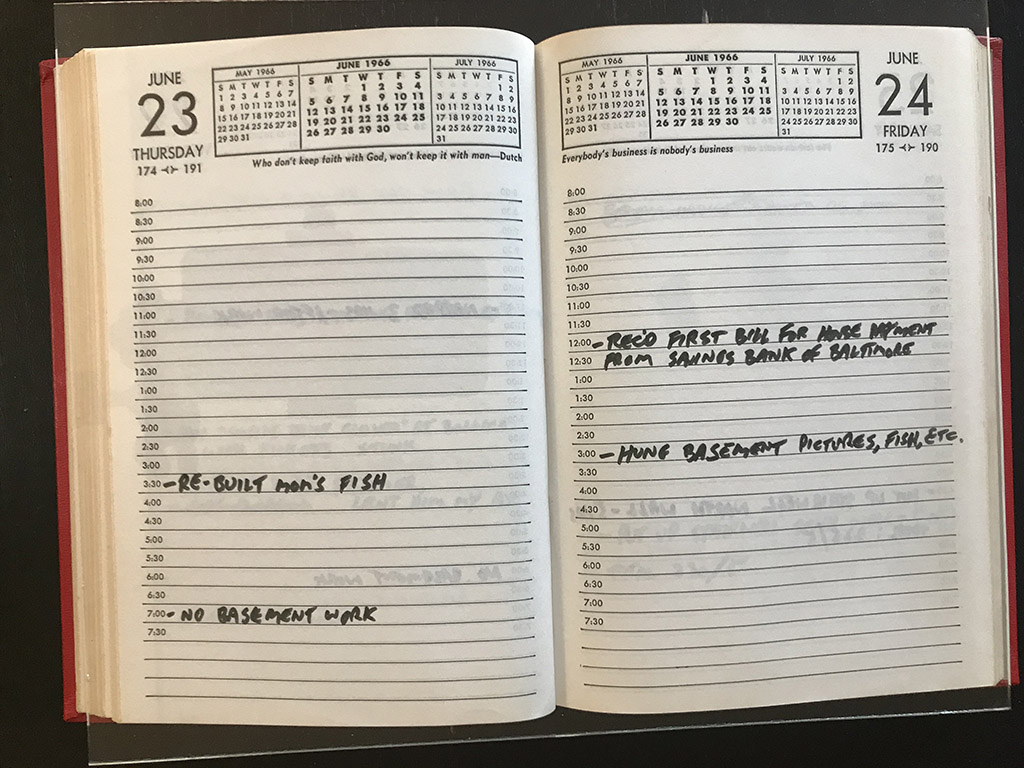 JUNE
23
THURSDAY
174 -<>- 191
MAY 1966
S M T W T F S
1 2 3 4 5 6 7
8 9 10 11 12 13 14
15 16 17 18 19 20 21
22 23 24 25 26 27 28
29 30 31
JUNE 1966
S M T W T F S
1 2 3 4
5 6 7 8 9 10 11
12 13 14 15 16 17 18
19 20 21 22 23 24 25
26 27 28 29 30
JULY 1966
S M T W T F S
1 2
3 4 5 6 7 8 9
10 11 12 13 14 15 16
17 18 19 20 21 22 23
24 25 26 27 28 29 30
31
Who don't keep faith with God, won't keep it with man—Dutch
8:00
8:30
9:00
9:30
10:00
10:30
11:00
11:30
12:00
12:30
1:00
1:30
2:00
2:30
3:00
3:30 - RE-BUILT MOM'S FISH
4:00
4:30
5:00
5:30
6:00
6:30
7:00 - NO BASEMENT WORK
7:30
MAY 1966
S M T W T F S
1 2 3 4 5 6 7
8 9 10 11 12 13 14
15 16 17 18 19 20 21
22 23 24 25 26 27 28
29 30 31
JUNE 1966
S M T W T F S
1 2 3 4
5 6 7 8 9 10 11
12 13 14 15 16 17 18
19 20 21 22 23 24 25
26 27 28 29 30
JULY 1966
S M T W T F S
1 2
3 4 5 6 7 8 9
10 11 12 13 14 15 16
17 18 19 20 21 22 23
24 25 26 27 28 29 30
31
JUNE
24
FRIDAY
175 -<>- 190
Everybody's business is nobody's business
8:00
8:30
9:00
9:30
10:00
10:30
11:00
11:30
12:00 - REC'D FIRST BILL FOR HOME PAYMENT
12:30 FROM SAVINGS BANK OF BALTIMORE
1:00
1:30
2:00
2:30
3:00 - HUNG BASEMENT PICTURES, FISH, ETC.
3:30
4:00
4:30
5:00
5:30
6:00
6:30
7:00
7:30